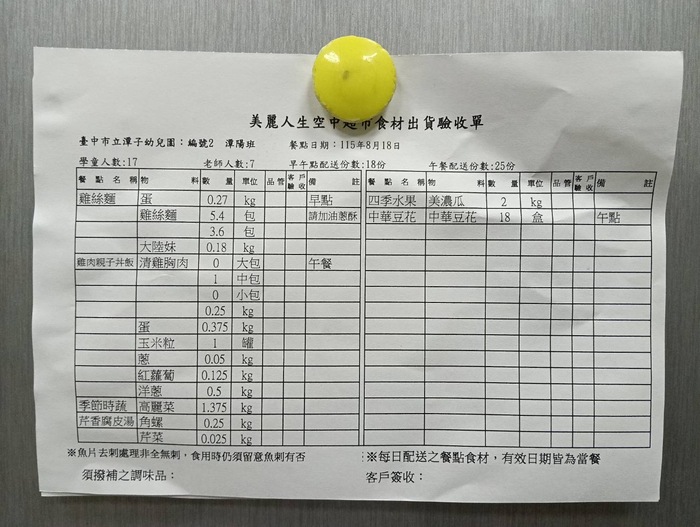 美麗人生空中超市食材出貨驗收單
臺中市立潭子幼兒園：編號2 潭陽班 餐點日期：115年8月18日
學童人數:17 老師人數:7 早午點配送份數:18份 午餐配送份數:25份
餐點名稱 物料 數量 單位 品管 客戶驗收 備註 餐點名稱 物料 數量 單位 品管 客戶驗收 備註
雞絲麵 蛋 0.27 kg 早點 四季水果 美濃瓜 2 kg
雞絲麵 5.4 包 請加油蔥酥 中華豆花 中華豆花 18 盒 午點
3.6 包
大陸妹 0.18 kg
雞肉親子丼飯 清雞胸肉 0 大包 午餐
1 中包
0 小包
0.25 kg
蛋 0.375 kg
玉米粒 1 罐
蔥 0.05 kg
紅蘿蔔 0.125 kg
洋蔥 0.5 kg
季節時蔬 高麗菜 1.375 kg
芹香腐皮湯 角螺 0.25 kg
芹菜 0.025 kg
※魚片去刺處理非全無刺，食用時仍須留意魚刺有否 ※每日配送之餐點食材，有效日期皆為當餐
須撥補之調味品： 客戶簽收：